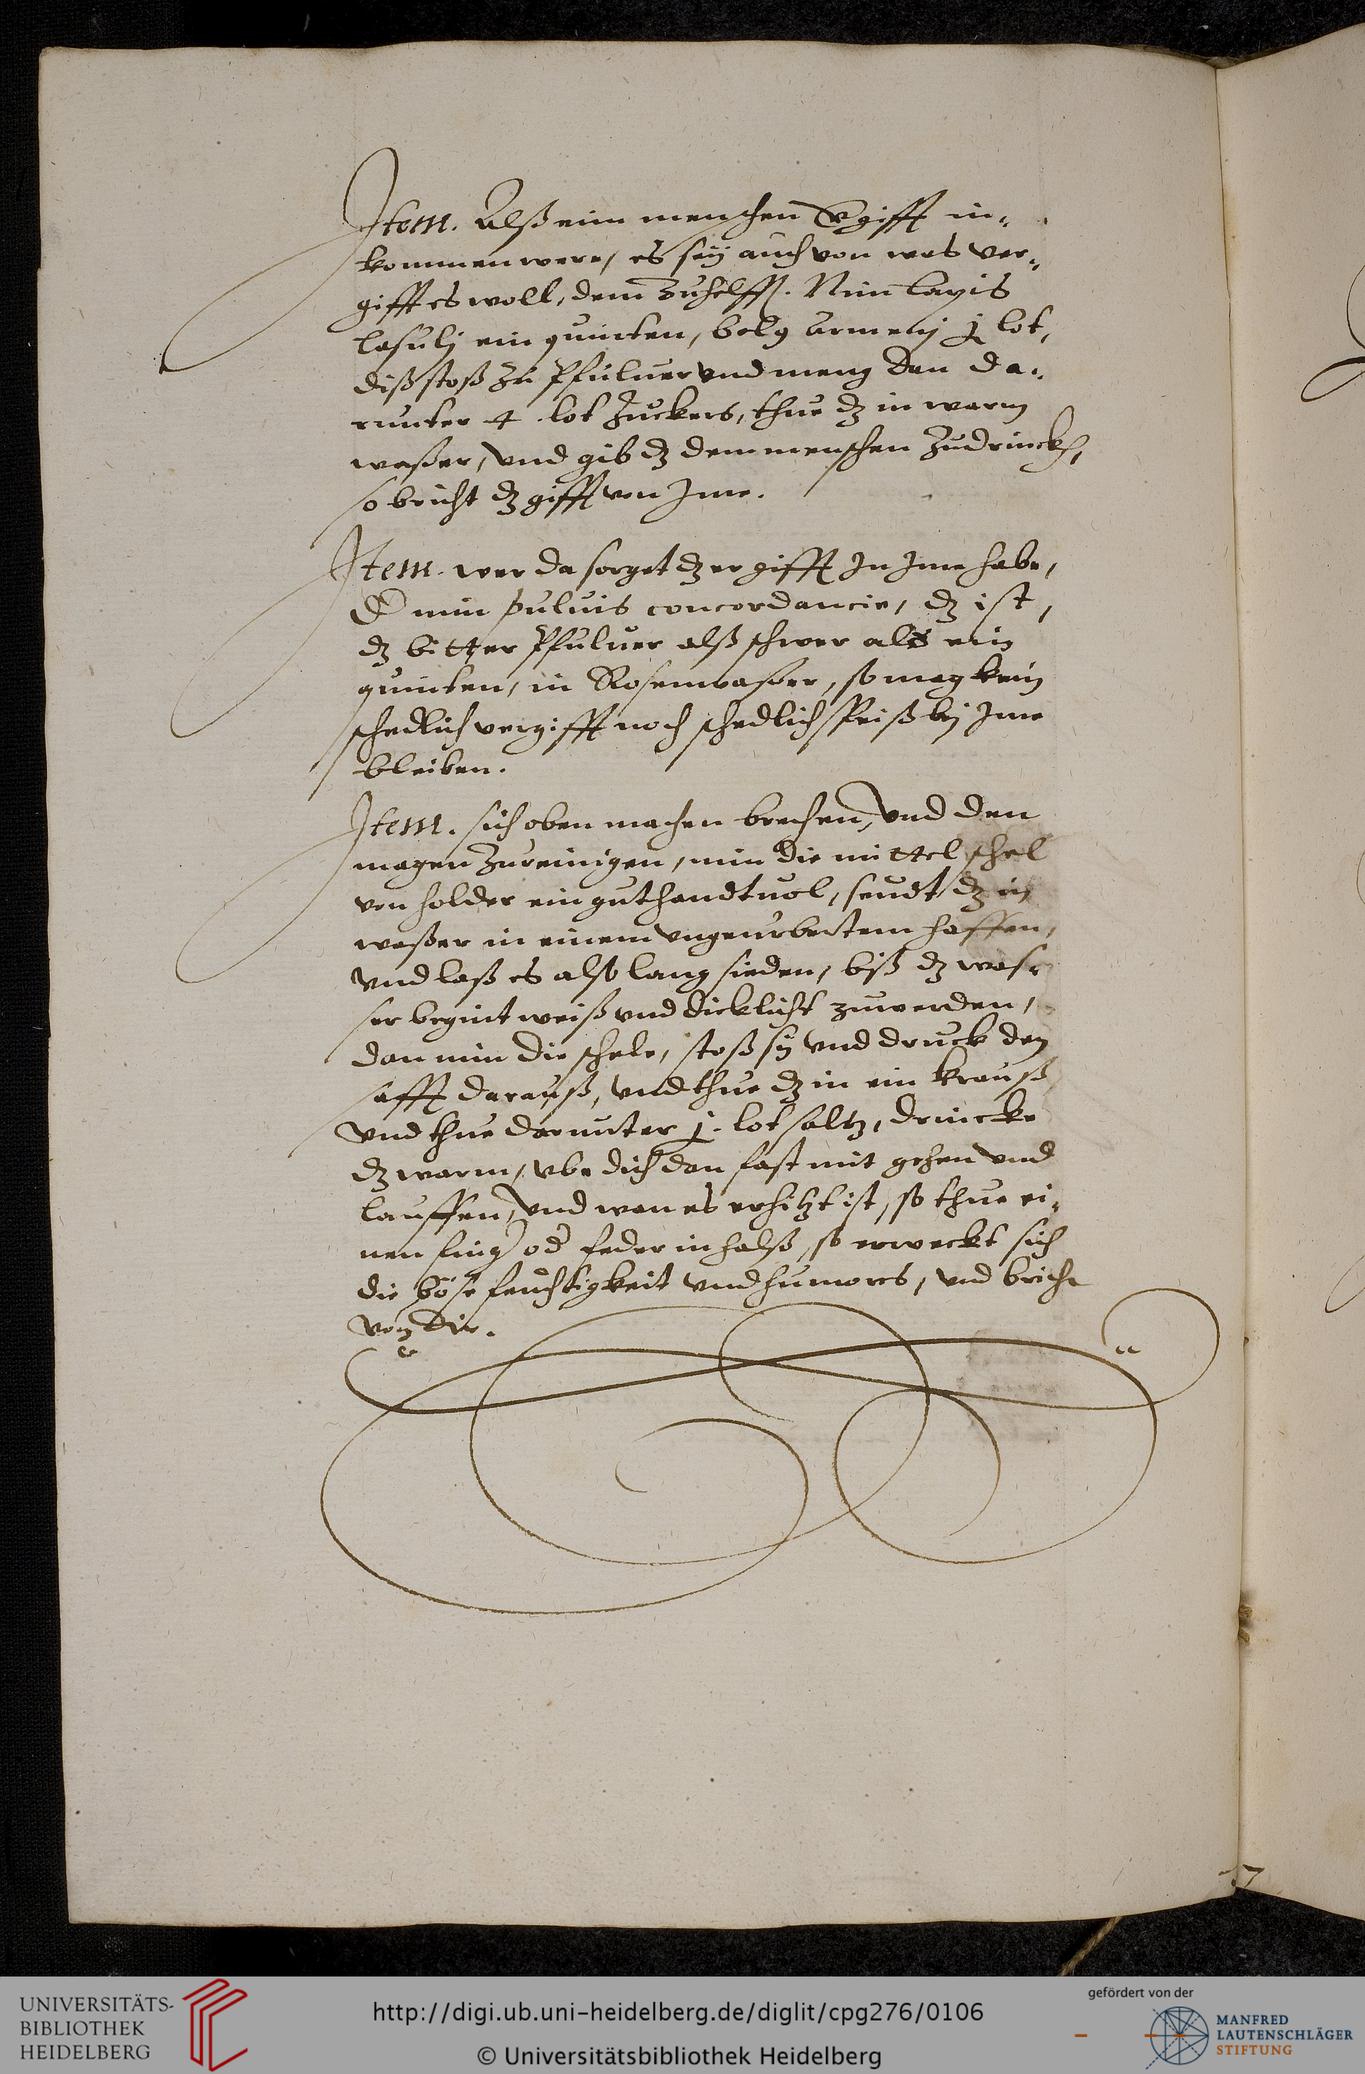 Item. Alß eim menschen Vgifft in-
kommen were, es seÿ auch von was ver-
gifft es woll, dem zuhelff. Nim lapis
lasulj ein quinten, bolg Armenj j lot,
diß stoß zu Pfuluer vnd meng den da-
runter 4 lot Zuckers, thue dz in warm
waßer, vnd gib dz dem menschen zudrinck,
so bricht dz gifft von Jme.
Item. wer da sorget dz er gifft In Jme habe,
D nim puluis concordancie, dz ist,
dz bitter Pfuluer alß schwer als ein
quinten, in Rosenwasser, so mag kein
schedlich vergifft noch schedlich speiß bej Jme
bleiben.
Item. sich oben machen brechen, vnd den
magen zureinigen, nim die mittel schel
von holder ein gut handtuol, seudt dz in
waßer in einem vngeurbertem haffen,
vnd laß es also lang sieden, biß dz was-
ser begint weiß vnd dicklicht zuwerden,
dan nim die schele, stoß sÿ vnd druck den
safft darauß, vnd thue dz in ein krauß
vnd thue darunter j. lot saltz, drincke
dz warm, vbe dich dan fast mit gehen vnd
lauffen, vnd wan es erhitzt ist, so thue ei-
nen fing od feder in halß, so erweckt sich
die böse feuchtigkeit vnd humores, vnd bricht
von dir.
UNIVERSITÄTS-
BIBLIOTHEK
HEIDELBERG
http://digi.ub.uni-heidelberg.de/diglit/cpg276/0106
© Universitätsbibliothek Heidelberg
gefördert von der
MANFRED
LAUTENSCHLÄGER
STIFTUNG